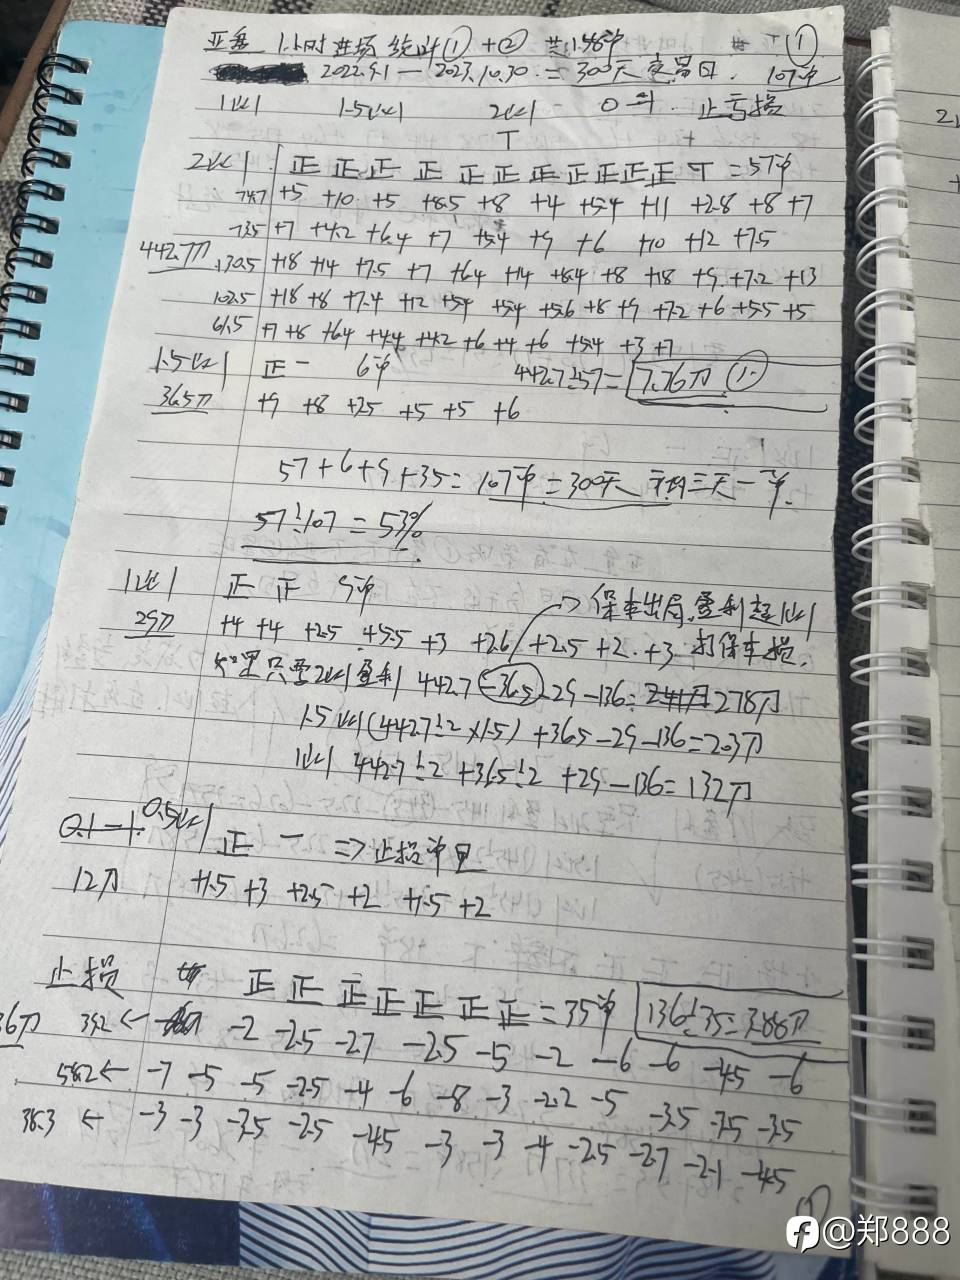 亚盘 1小时进场统计① + ② 共158冲 ①
2022.9.1 — 2023.10.30. = 300天交易日. 107冲
1比1 1.5比1 2比1 = 0 止亏损
T
2比1 正 正 正 正 正 正 正 正 正 正 正 T = 57冲
74.7 +5 +10 +5 +8.5 +8 +4 +5.4 +11 +2.8 +8 +7
73.5 +7 +4.2 +6.4 +7 +5.4 +9 +6 +10 +12 +7.5
442.7刀 130.5 +18 +14 +7.5 +7 +6.4 +14 +8.4 +8 +18 +9 +7.2 +13
102.5 +18 +8 +7.4 +12 +5.4 +5.4 +5.6 +8 +9 +7.2 +6 +5.5 +5
61.5 +7 +8 +6.4 +4.4 +4.2 +6 +4 +6 +5.4 +3 +7
1.5比1 正 一 6冲 442.7÷57= 7.76刀 ①
36.5刀 +9 +8 +2.5 +5 +5 +6
57+6+9+35= 107冲 = 300天 平均三天一冲.
57÷107 = 53%
1比1 正 正 9冲 → 保本出局.盈利超1比1
29刀 +4 +4 +2.5 +5.5 +3 +2.6 +2.5 +2 +3 打保本损.
如果只要2比1盈利 442.7-36.5-29-136= 278刀
1.5比1(442.7÷2×1.5) +36.5-29-136=203刀
1比1 442.7÷2 +36.5÷2 +29-136= 132刀
0.1一1 0.5比1 正 一 => 止损冲里
12刀 +1.5 +3 +2.5 +2 +1.5 +2
止损 正 正 正 正 正 正 正 = 35冲 136÷35=3.88刀
36刀 39.2 ← -2 -2.5 -2.7 -2.5 -5 -2 -6 -6 -4.5 -6
58.2 ← -7 -5 -5 -2.5 -4 -6 -8 -3 -2.2 -5 -3.5 -3.5 -3.5
38.3 ← -3 -3 -3.5 -2.5 -4.5 -3 -3 -4 -2.5 -2.7 -2.1 -4.5
①
@郑888